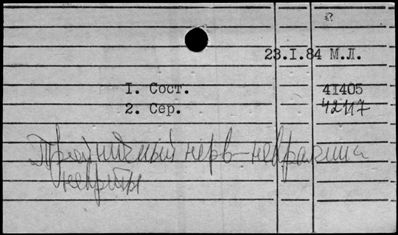 23.I.84 М.Л.
1. Сост. 41405
2. Сер. 42117
Тройничный нерв – невралгия
невриты